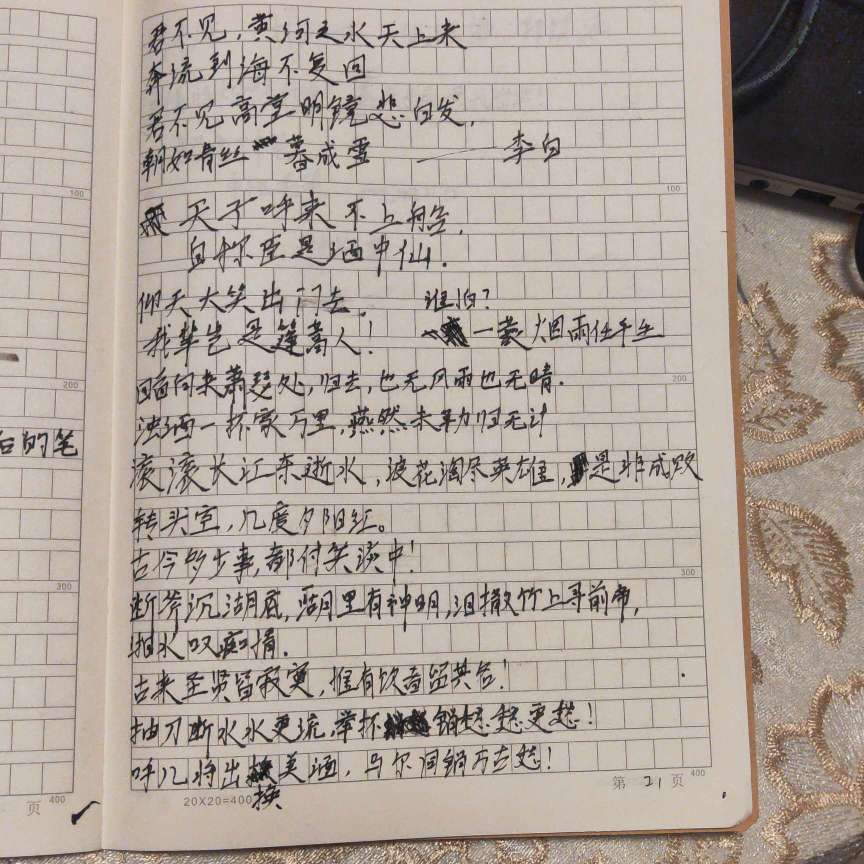 君不见，黄河之水天上来
奔流到海不复回
君不见高堂明镜悲白发，
朝如青丝暮成雪 ——李白
100
100
天子呼来不上船，
自称臣是酒中仙．
仰天大笑出门去， 谁怕？
我辈岂是蓬蒿人！ 一蓑烟雨任平生
回首向来萧瑟处，归去，也无风雨也无晴．
200
200
浊酒一杯家万里，燕然未勒归无计
后的笔
滚滚长江东逝水，浪花淘尽英雄，是非成败
转头空，几度夕阳红。
古今多少事，都付笑谈中！
300
300
断斧沉湖底，湖里有神明，泪撒竹上寻前帝，
抽水叹痴情．
古来圣贤皆寂寞，惟有饮者留其名！
抽刀断水水更流，举杯销愁愁更愁！
呼儿将出换美酒，与尔同销万古愁！
页 400
20X20=400
第 21 页 400